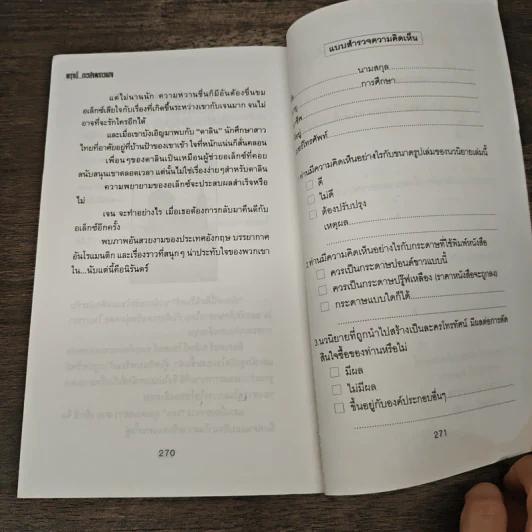 แต่ไม่นานนัก ความหวานชื่นก็มีอันต้องขื่นขม
อเล็กซ์เสียใจกับเรื่องที่เกิดขึ้นระหว่างเขากับเจนมาก จนไม่
อาจที่จะรักใครอีกได้
และเมื่อเขาบังเอิญมาพบกับ “คาลิน” นักศึกษาสาว
ไทยที่อาศัยอยู่ที่บ้านป้าของเขาเข้า ใจที่หนักแน่นก็สั่นคลอน
เพื่อนๆของคาลินเป็นเหมือนผู้ช่วยอเล็กซ์ที่คอย
สนับสนุนเขาตลอดเวลา แต่นั่นไม่ใช่เรื่องง่ายๆสำหรับคาลิน
ความพยายามของอเล็กซ์จะประสบผลสำเร็จหรือ
ไม่
เจน จะทำอย่างไร เมื่อเธอต้องการกลับมาคืนดีกับ
อเล็กซ์อีกครั้ง
พบภาพอันสวยงามของประเทศอังกฤษ บรรยากาศ
อันโรแมนติก และเรื่องราวที่สนุกๆ น่าประทับใจของพวกเขา
ใน...นับแต่นี้คือนิรันดร์
270
แบบสำรวจความคิดเห็น
นามสกุล
การศึกษา
ท่านมีความคิดเห็นอย่างไรกับขนาดรูปเล่มของนวนิยายเล่มนี้
ดี
ไม่ดี
ต้องปรับปรุง
เหตุผล
2.ท่านมีความคิดเห็นอย่างไรกับกระดาษที่ใช้พิมพ์หนังสือ
ควรเป็นกระดาษปอนด์ขาวแบบนี้
ควรเป็นกระดาษปรู๊ฟเหลือง (ราคาหนังสือจะถูกลง)
กระดาษแบบใดก็ได้
3.นวนิยายที่ถูกนำไปสร้างเป็นละครโทรทัศน์ มีผลต่อการตัด
สินใจซื้อของท่านหรือไม่
มีผล
ไม่มีผล
ขึ้นอยู่กับองค์ประกอบอื่นๆ
271